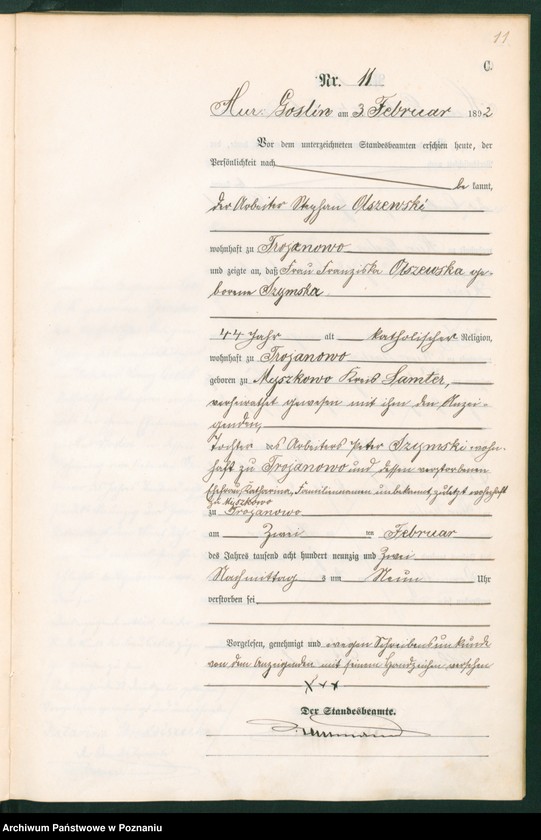 11
C.
Nr. 11
Mur. Goslin am 3. Februar 1892
Vor dem unterzeichneten Standesbeamten erschien heute, der
Persönlichkeit nach
be kannt,
der Arbeiter Stephan Olszewski
wohnhaft zu Trojanowo
und zeigte an, daß Frau Franziska Olszewska ge-
borene Szymska
44 Jahr alt katholischer Religion,
wohnhaft zu Trojanowo
geboren zu Myszkowo Kreis Samter,
verheirathet gewesen mit ihm dem Anzei-
genden,
Tochter des Arbeiters Peter Szymski wohn-
haft zu Trojanowo und dessen verstorbenen
Ehefrau Katharina, Familiennamen unbekannt, zuletzt wohnhaft
zu Myszkowo
zu Trojanowo
am Zwei ten Februar
des Jahres tausend acht hundert neunzig und Zwei
Nachmittag s um Neun Uhr
verstorben sei
Vorgelesen, genehmigt und wegen Schreibensunkunde
von dem Anzeigenden mit seinem Handzeichen versehen
XXX
Der Standesbeamte.
Archiwum Państwowe w Poznaniu